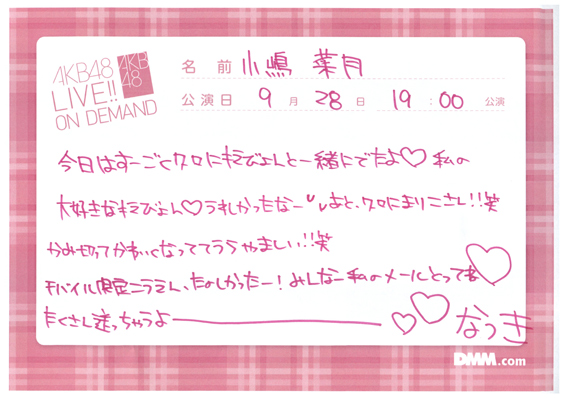 AKB48
LIVE!!
ON DEMAND
AKB
48
名 前 小嶋 菜月
公演日 9 月 28 日 19 : 00 公演
今日はすーごく久々にもえぴょんと一緒にでたよ♡ 私の
大好きなもえぴょん♡うれしかったなー あと、久々にまりこさし!!笑
かみ切ってかわいくなっててうらやましい!!笑
モバイル限定こうえん、たのしかったー!みんなー私のメールとってね♡
たくさん送っちゃうよー ♡♡ なつき
DMM.com